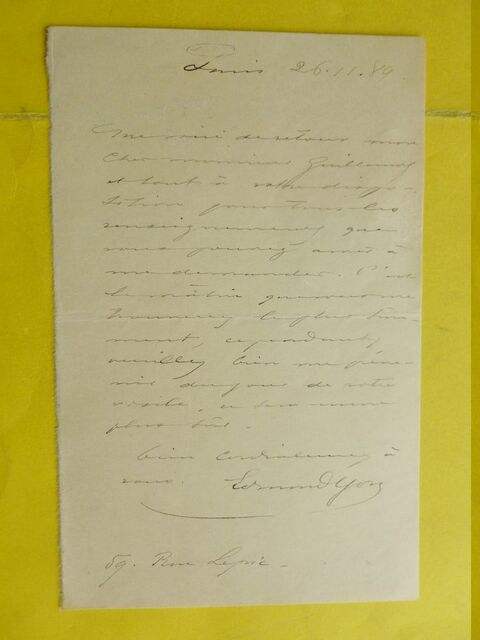 Paris 26.11.89.
Me voici de retour mon
cher monsieur Guillemot
et tout à votre dispo-
sition pour tous les
renseignements que
vous pourrez avoir à
me demander. C'est
le matin que vous me
trouverez le plus sûre-
ment, cependant,
veuillez bien me préve-
nir du jour de votre
visite, ce sera encore
plus sûr.
bien cordialement à
vous. Edmond Yon
59. Rue Lepic.